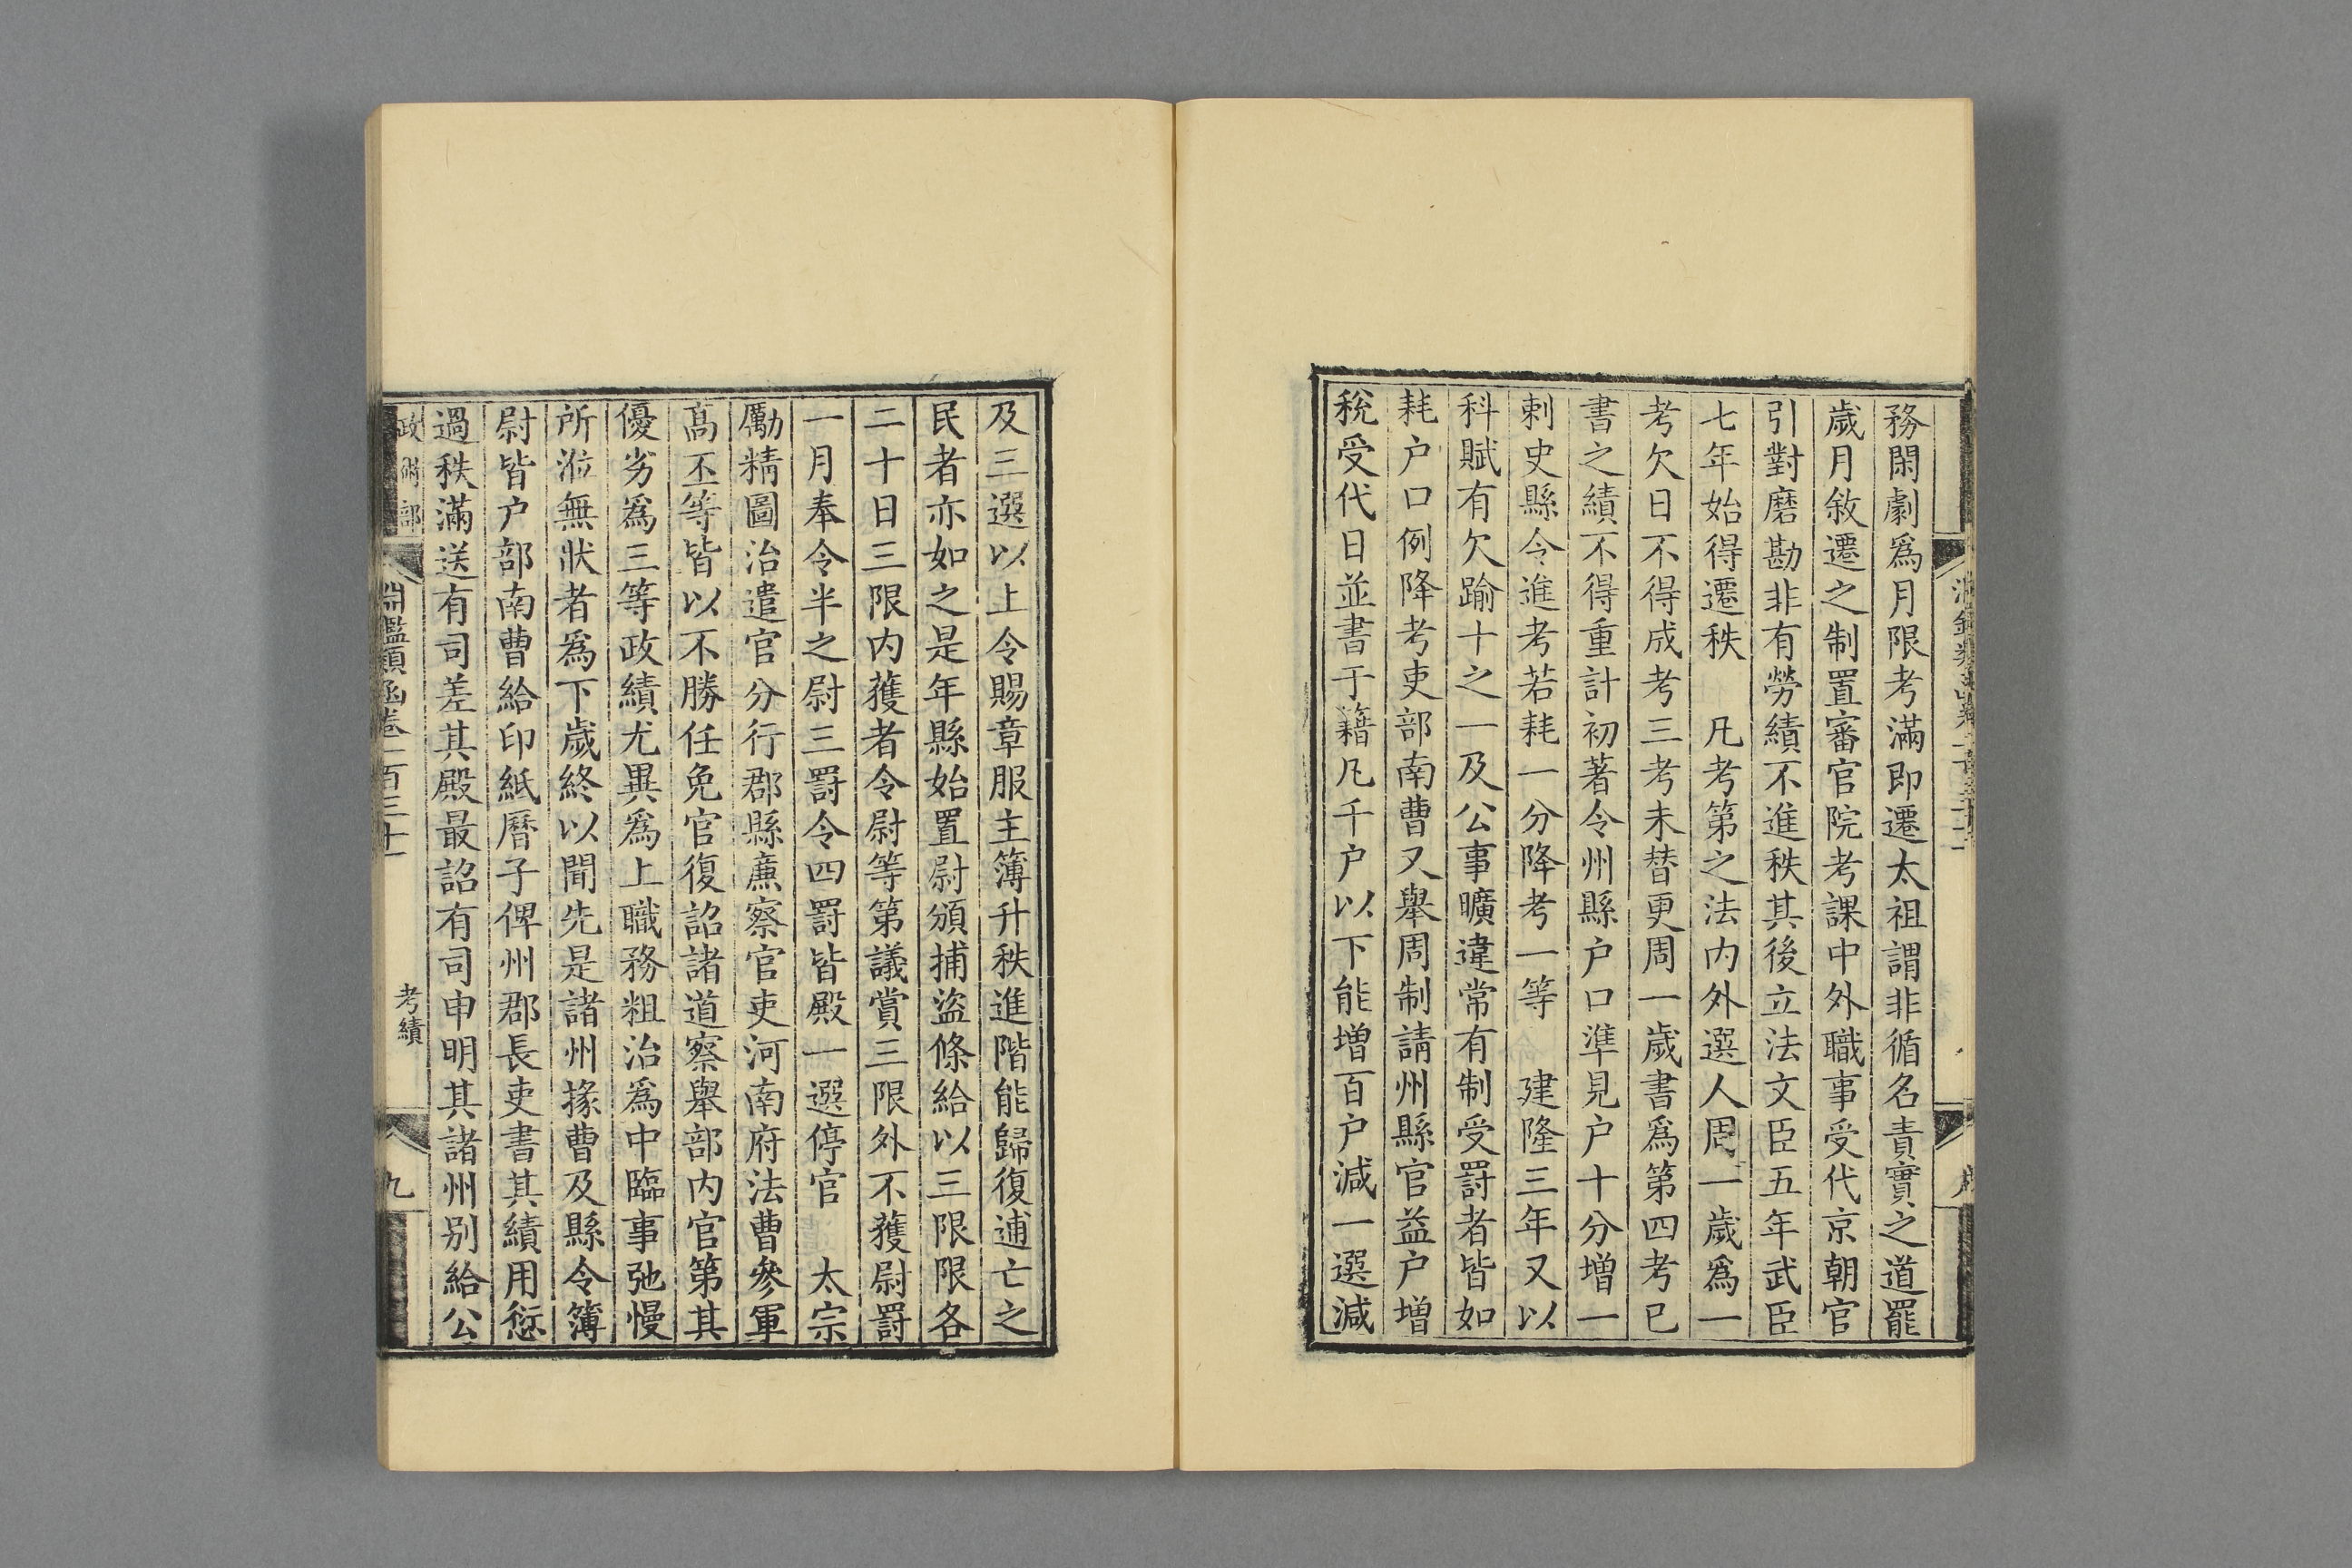 務閑劇爲月限考滿即遷太祖謂非循名責實之道罷
歲月敘遷之制置審官院考課中外職事受代京朝官
引對磨勘非有勞績不進秩其後立法文臣五年武臣
七年始得遷秩　凡考第之法内外選人周一歲爲一
考欠日不得成考三考未替更周一歲書爲第四考已
書之績不得重計初著令州縣户口準見户十分增一
刺史縣令進考若耗一分降考一等　建隆三年又以
科賦有欠踰十之一及公事曠違常有制受罰者皆如
耗户口例降考吏部南曹又舉周制請州縣官益户增
稅受代日並書于籍凡千户以下能增百户減一選減
及三選以上令賜章服主簿升秩進階能歸復逋亡之
民者亦如之是年縣始置尉頒捕盜條給以三限限各
二十日三限内獲者令尉等第議賞三限外不獲尉罰
一月奉令半之尉三罰令四罰皆殿一選停官　太宗
勵精圖治遣官分行郡縣廉察官吏河南府法曹參軍
高丕等皆以不勝任免官復詔諸道察舉部内官第其
優劣爲三等政績尤異爲上職務粗治爲中臨事弛慢
所涖無狀者爲下歲終以聞先是諸州掾曹及縣令簿
尉皆户部南曹給印紙曆子俾州郡長吏書其績用愆
過秩滿送有司差其殿最詔有司申明其諸州别給公
政術部　淵鑑類函卷一百三十一　考績　九